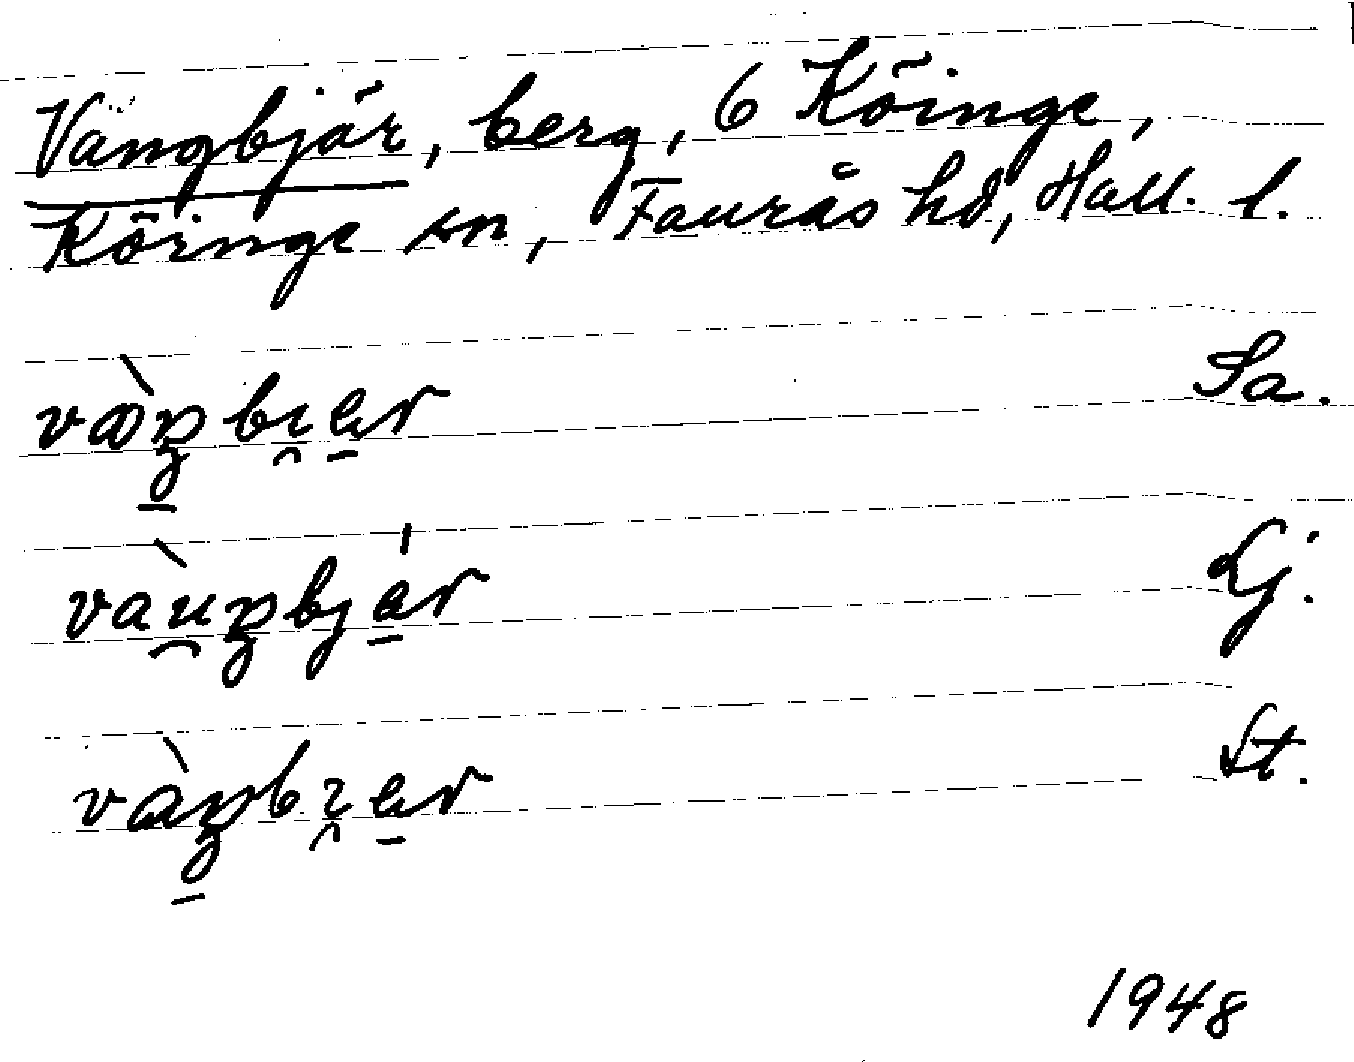 Vängbjär, berg, 6 Köinge,
Köinge sn, Faurås hd, Hall. l.
Sa.
Lj.
St.
1948